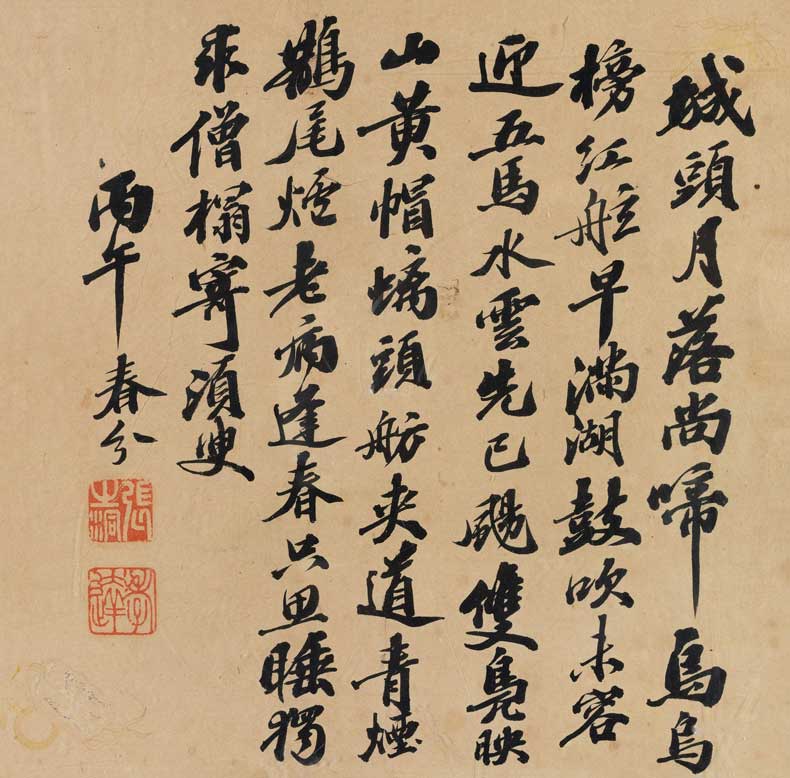 城頭月落尚啼烏烏
榜紅舷早滿湖鼓吹未容
迎五馬水雲先已颺雙鳧映
山黃帽螭頭舫夾道青煙
鵲尾爐老病逢春只思睡獨
求僧榻寄須臾
丙午春分
張之洞
孝達